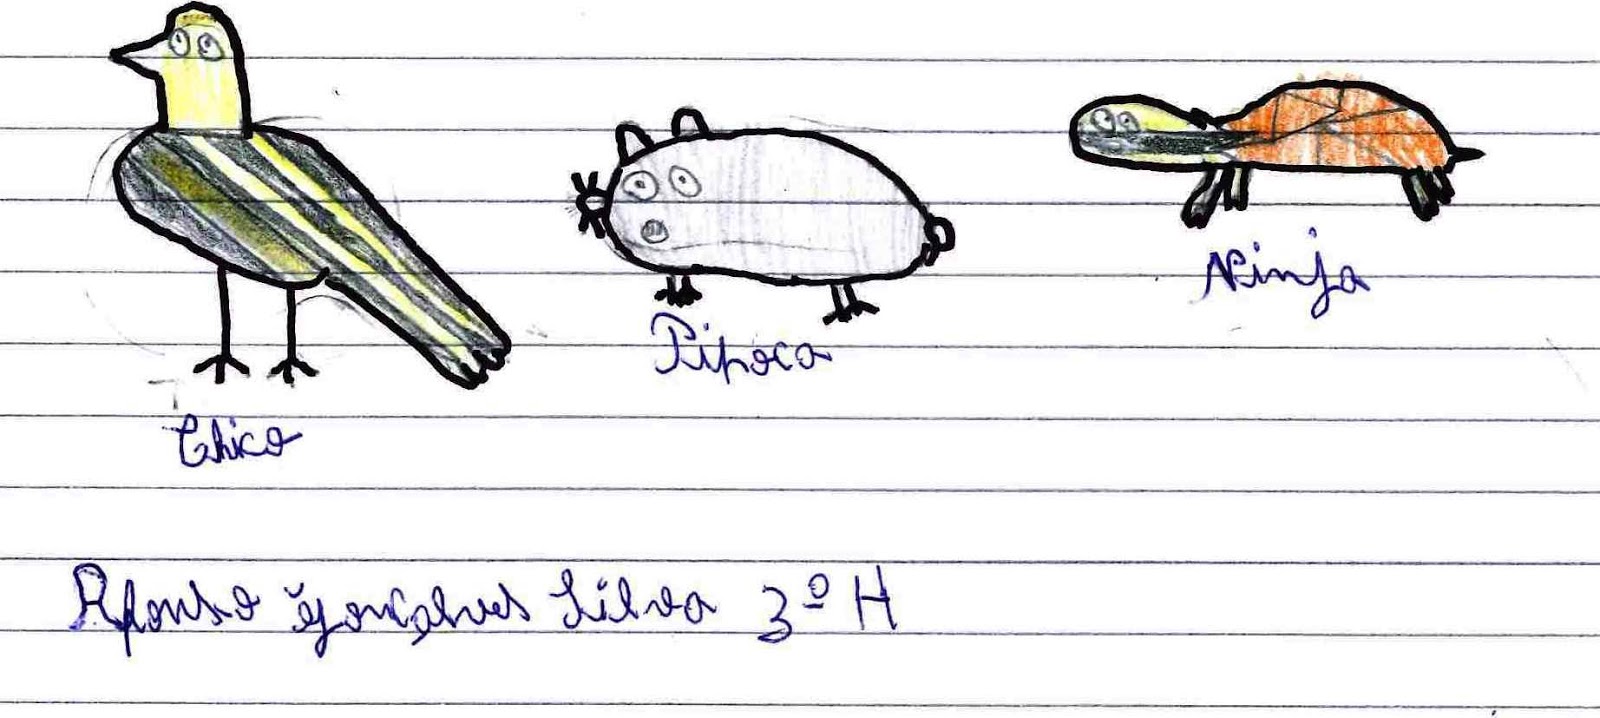 Chico
Pipoca
Ninja
Afonso Gonçalves Silva 3º H